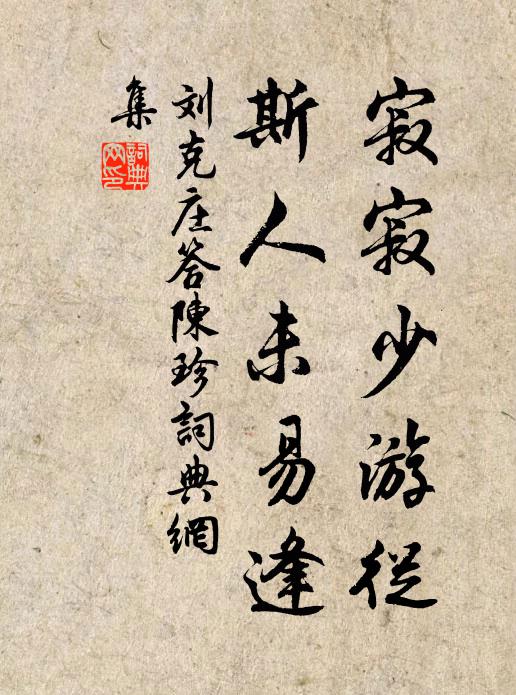 寂寂少游従
斯人未易逢
刘克庄答陳珍詞典網
集
詞典網印